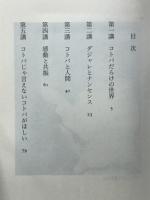 目次
第一講 コトバだらけの世界 5
第二講 ダジャレとナンセンス 23
第三講 コトバと人間 47
第四講 感動と共振 61
第五講 コトバじゃ言えないコトバがほしい 79